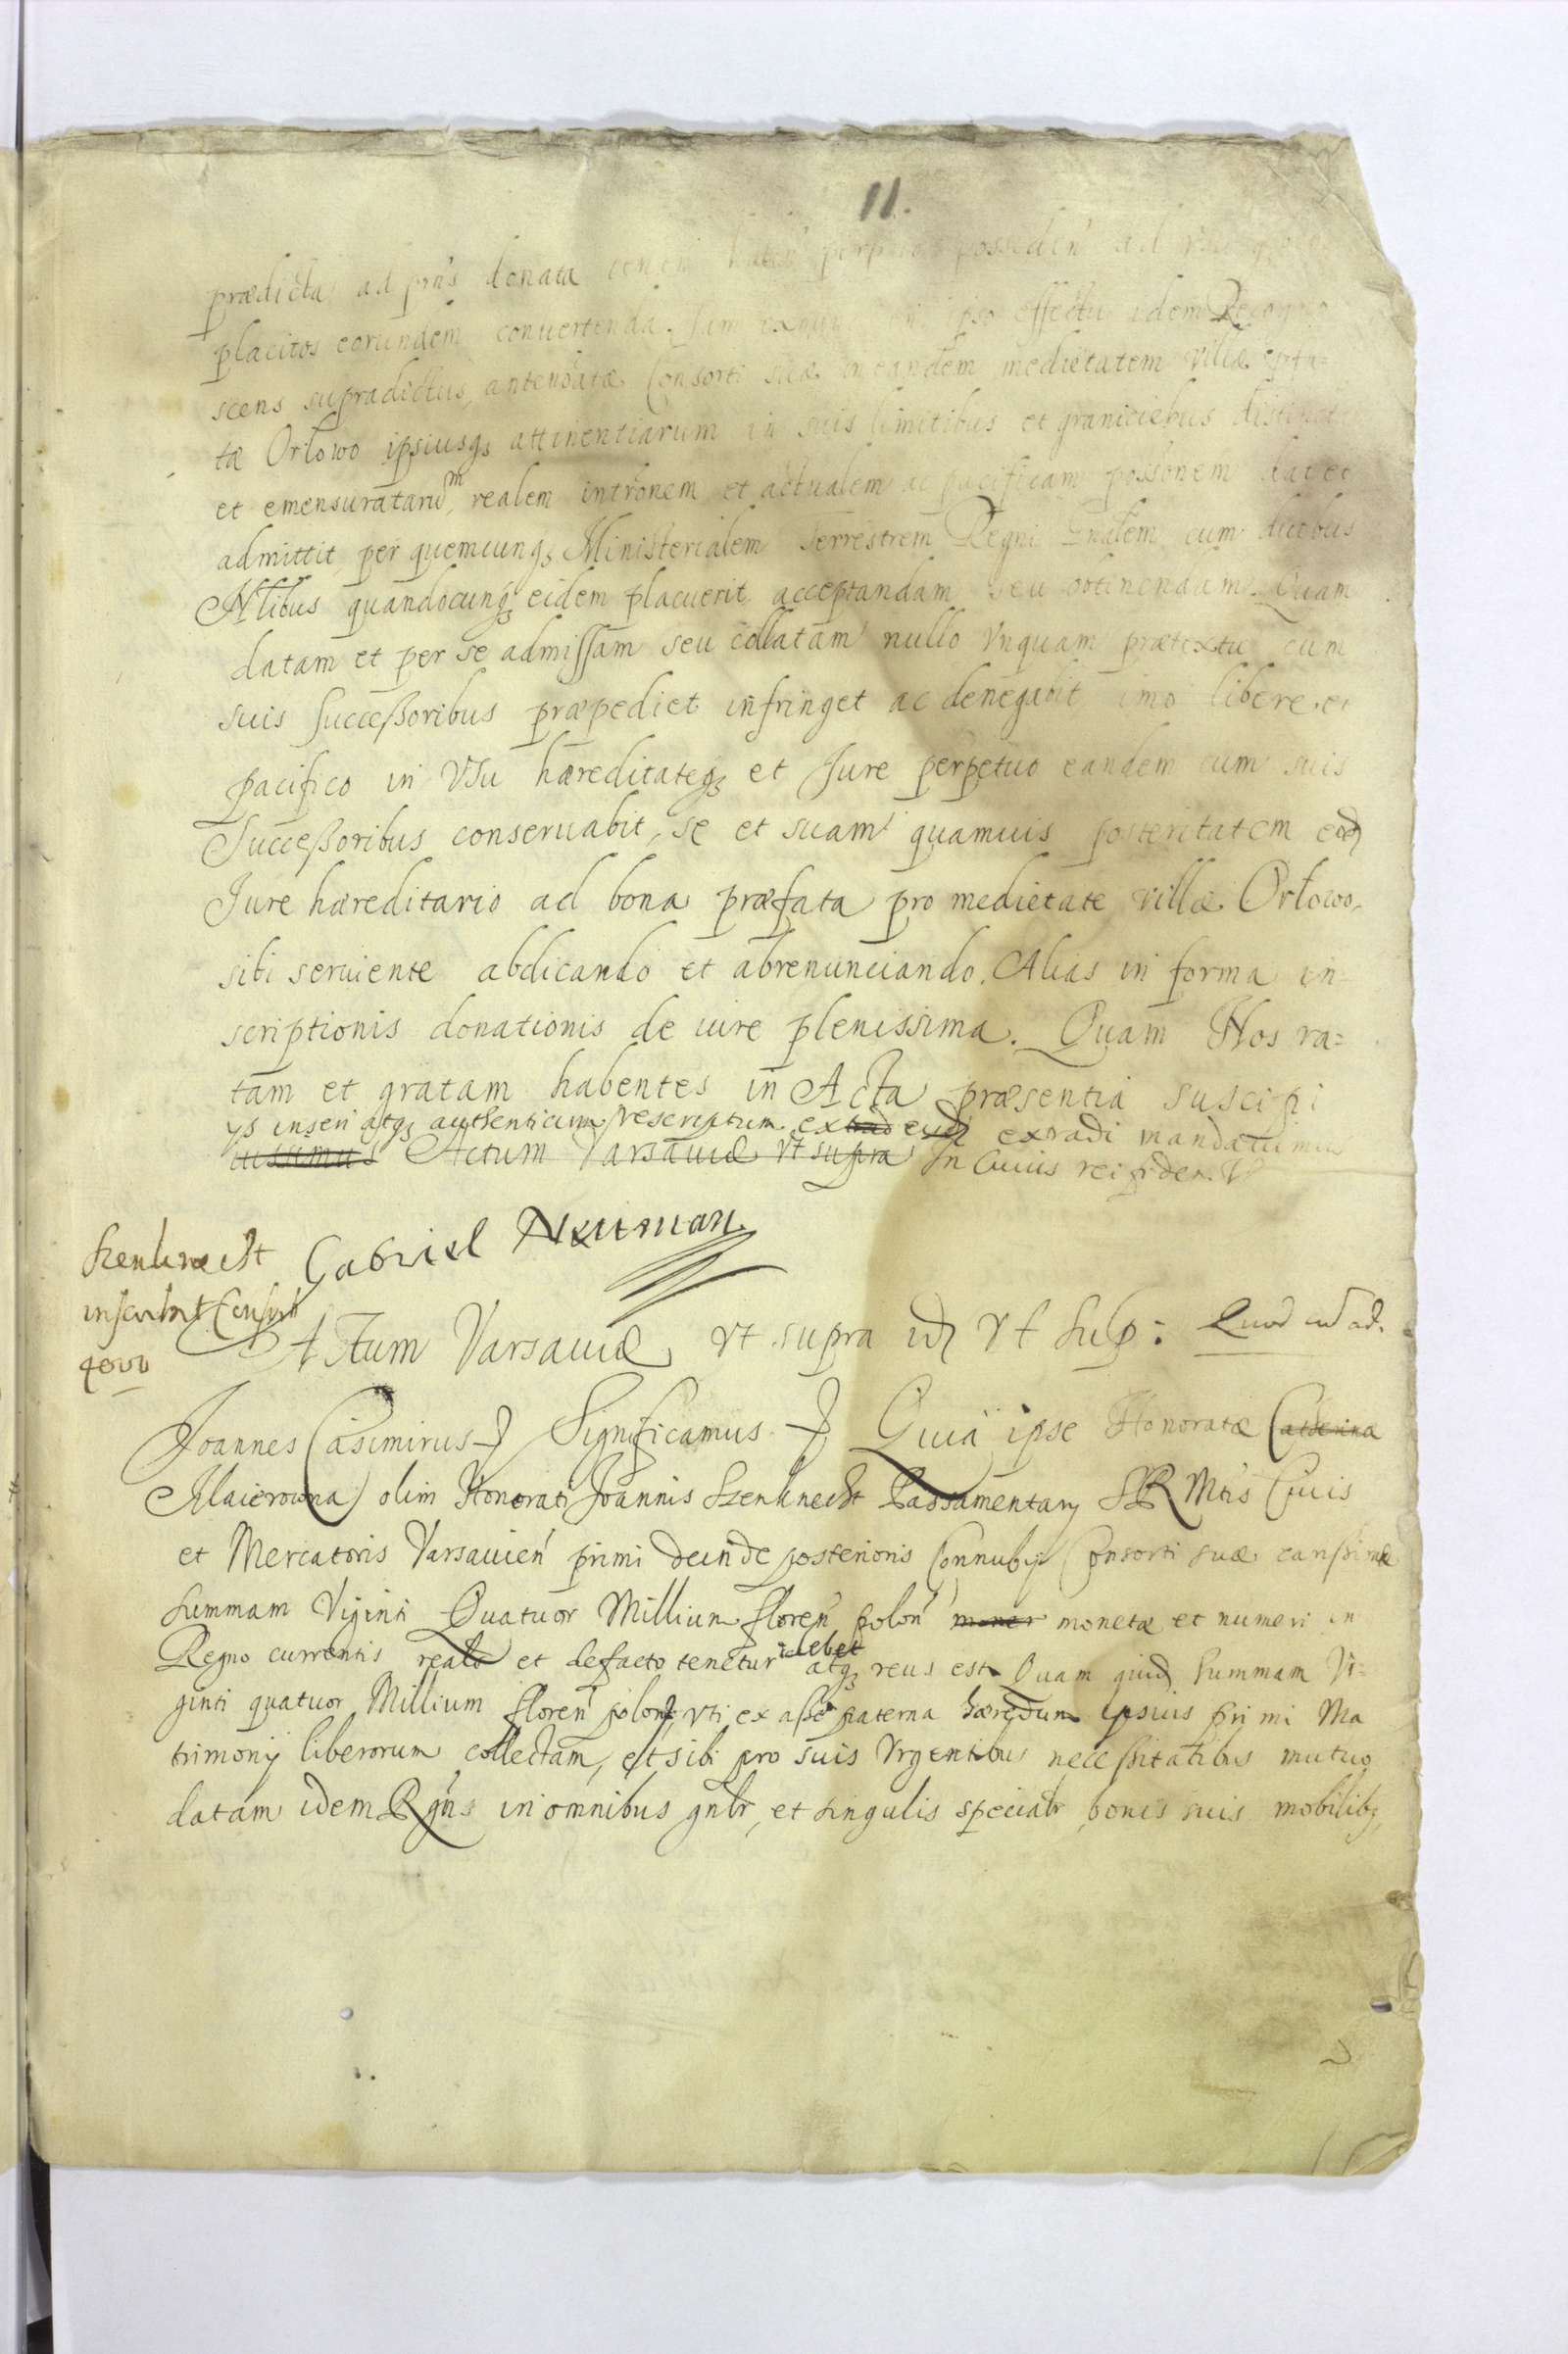 11.
prædicta ad præns donata possidend ad
placitos eorundem convertenda. Jam ex nunc ipso effectu idem Recogno
scens supradictus, antenbatæ Consorti suæ in eandem medietatem villæ
tæ Orłowo ipsiusq₃ attinentiarum in suis limitibus et graniciebus distinct
et emensuratarum, realem intronem et actualem ac pacificam possonem dat et
admittit, per quemcunq₃ Ministerialem Terrestrem Regni Gnalem, cum duobus
Nlibus quandocunq₃ eidem placuerit acceptandam seu obtinendam. Quam
datam et per se admissam seu collatam nullo vnquam prætextu cum
suis Successoribus præpediet infringet ac denegabit imo libere et
pacifico in Vsu hæreditateq₃ et Jure perpetuo eandem cum suis
Successoribus conseruabit, se et suam quamuis posteritatem eod
Jure hæreditario ad bona præfata pro medietate villæ Orłowo,
sibi seruiente abdicando et abrenunciando. Alias in forma in-
scriptionis donationis de iure plenissima. Quam Nos ra=
tam et gratam habentes in Acta præsentia suscipi
ys inseri atq₃ authenticum rescriptum extrad eid extradi mandauimus
iussimus Actum Varsauiæ vt supra In Cuius rei fidem
Szenknecht Gabriel Neuman
inscribit Consorti
Actum Varsauiæ vt supra id vt Sup: Quod
Joannes Casimirus Significamus Quia ipse Honoratæ Catherinæ
Maierowna olim Honorati Joannis Szenknecht Passamentarij SRMtis Ciuis
et Mercatoris Varsauien primi deinde posterioris Connubij Consorti suæ
Summam Viginti Quatuor Millium floren polon monet monetæ et numeri in
Regno currentis realr et defacto tenetur debet atq₃ reus est. Quam quid Summam Vi=
ginti quatuor Millium floren polon vti ex asse paterna hæredum ipsius primi Ma
trimonij liberorum collectam, et sibi pro suis Vrgentibus necessitatibus mutuo
datam idem Rgns in omnibus gnlr, et singulis specialr bonis suis mobilib₃,